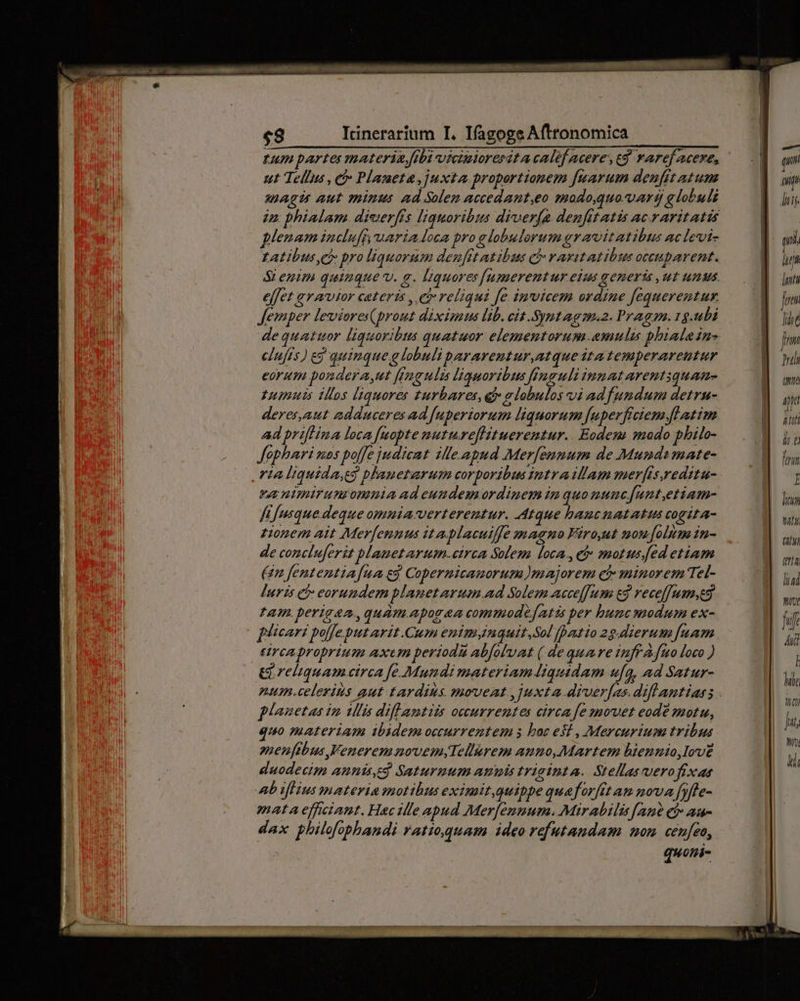 58 Itinerarium I. Isagoge Astronomica
tum partes materiæ sibi viciniores ita calefacere, & rarefacere,
ut Tellus, & Planetæ, juxta proportionem suarum densitatum
magis aut minus ad Solem accedant, eo modo, quo varij globuli
in phialam diversis liquoribus diversæ densitatis ac raritatis
plenam inclusi, varia loca pro globulorum gravitatibus ac levi-
tatibus, & pro liquorum densitatibus & raritatibus occuparent.
Si enim quinque v. g. liquores sumerentur eius generis, ut unus
esset gravior cæteris, & reliqui se invicem ordine sequerentur
semper leviores (prout diximus lib. cit. Syntagm. 2. Pragm. 15. ubi
de quatuor liquoribus quatuor elementorum æmulis phialæ in-
clusis) & quinque globuli pararentur, atque ita temperarentur
eorum pondera, ut singulis liquoribus singuli innatarent; quan-
tumuis illos liquores turbares, & globulos vi ad fundum detru-
deres, aut adduceres ad superiorum liquorum superficiem, statim
ad pristina loca suopte nutu restituerentur. Eodem modo philo-
sophari nos posse judicat ille apud Mersennum de Mundi mate-
ria liquida, & planetarum corporibus intra illam mersis, reditu-
ra nimirum omnia ad eundem ordinem in quo nunc sunt, etiam-
si susque deque omnia verterentur. Atque hanc natatus cogita-
tionem ait Mersennus ita placuisse magno Viro, ut non solùm in-
de concluserit planetarum circa Solem loca, & motus, sed etiam
(in sententia sua & Copernicanorum) majorem & minorem Tel-
luris & eorundem planetarum ad Solem accessum & recessum, &
tam perigæa, quàm apogæa commodè satis per hunc modum ex-
plicari posse putarit. Cum enim, inquit, Sol spatio 25. dierum suam
circa proprium axem periodũ absolvat ( de qua re infrà suo loco )
& reliquam circa se Mundi materiam liquidam usq, ad Satur-
num celeriùs aut tardiùs moveat, juxta diversas distantias;
planetas in illis distantiis occurrentes circa se movet eodẽ motu,
quo materiam ibidem occurrentem; hoc est, Mercurium tribus
mensibus, Venerem novem, Tellurem anno, Martem biennio, Iovẽ
duodecim annis, & Saturnum annis triginta. Stellas vero fixas
ab istius materiæ motibus eximit, quippe quæ forsitan nova syste-
mata efficiant. Hæc ille apud Mersennum. Mirabilis sanè & au-
dax philosophandi ratio, quam ideo refutandam non censeo,
quoni-